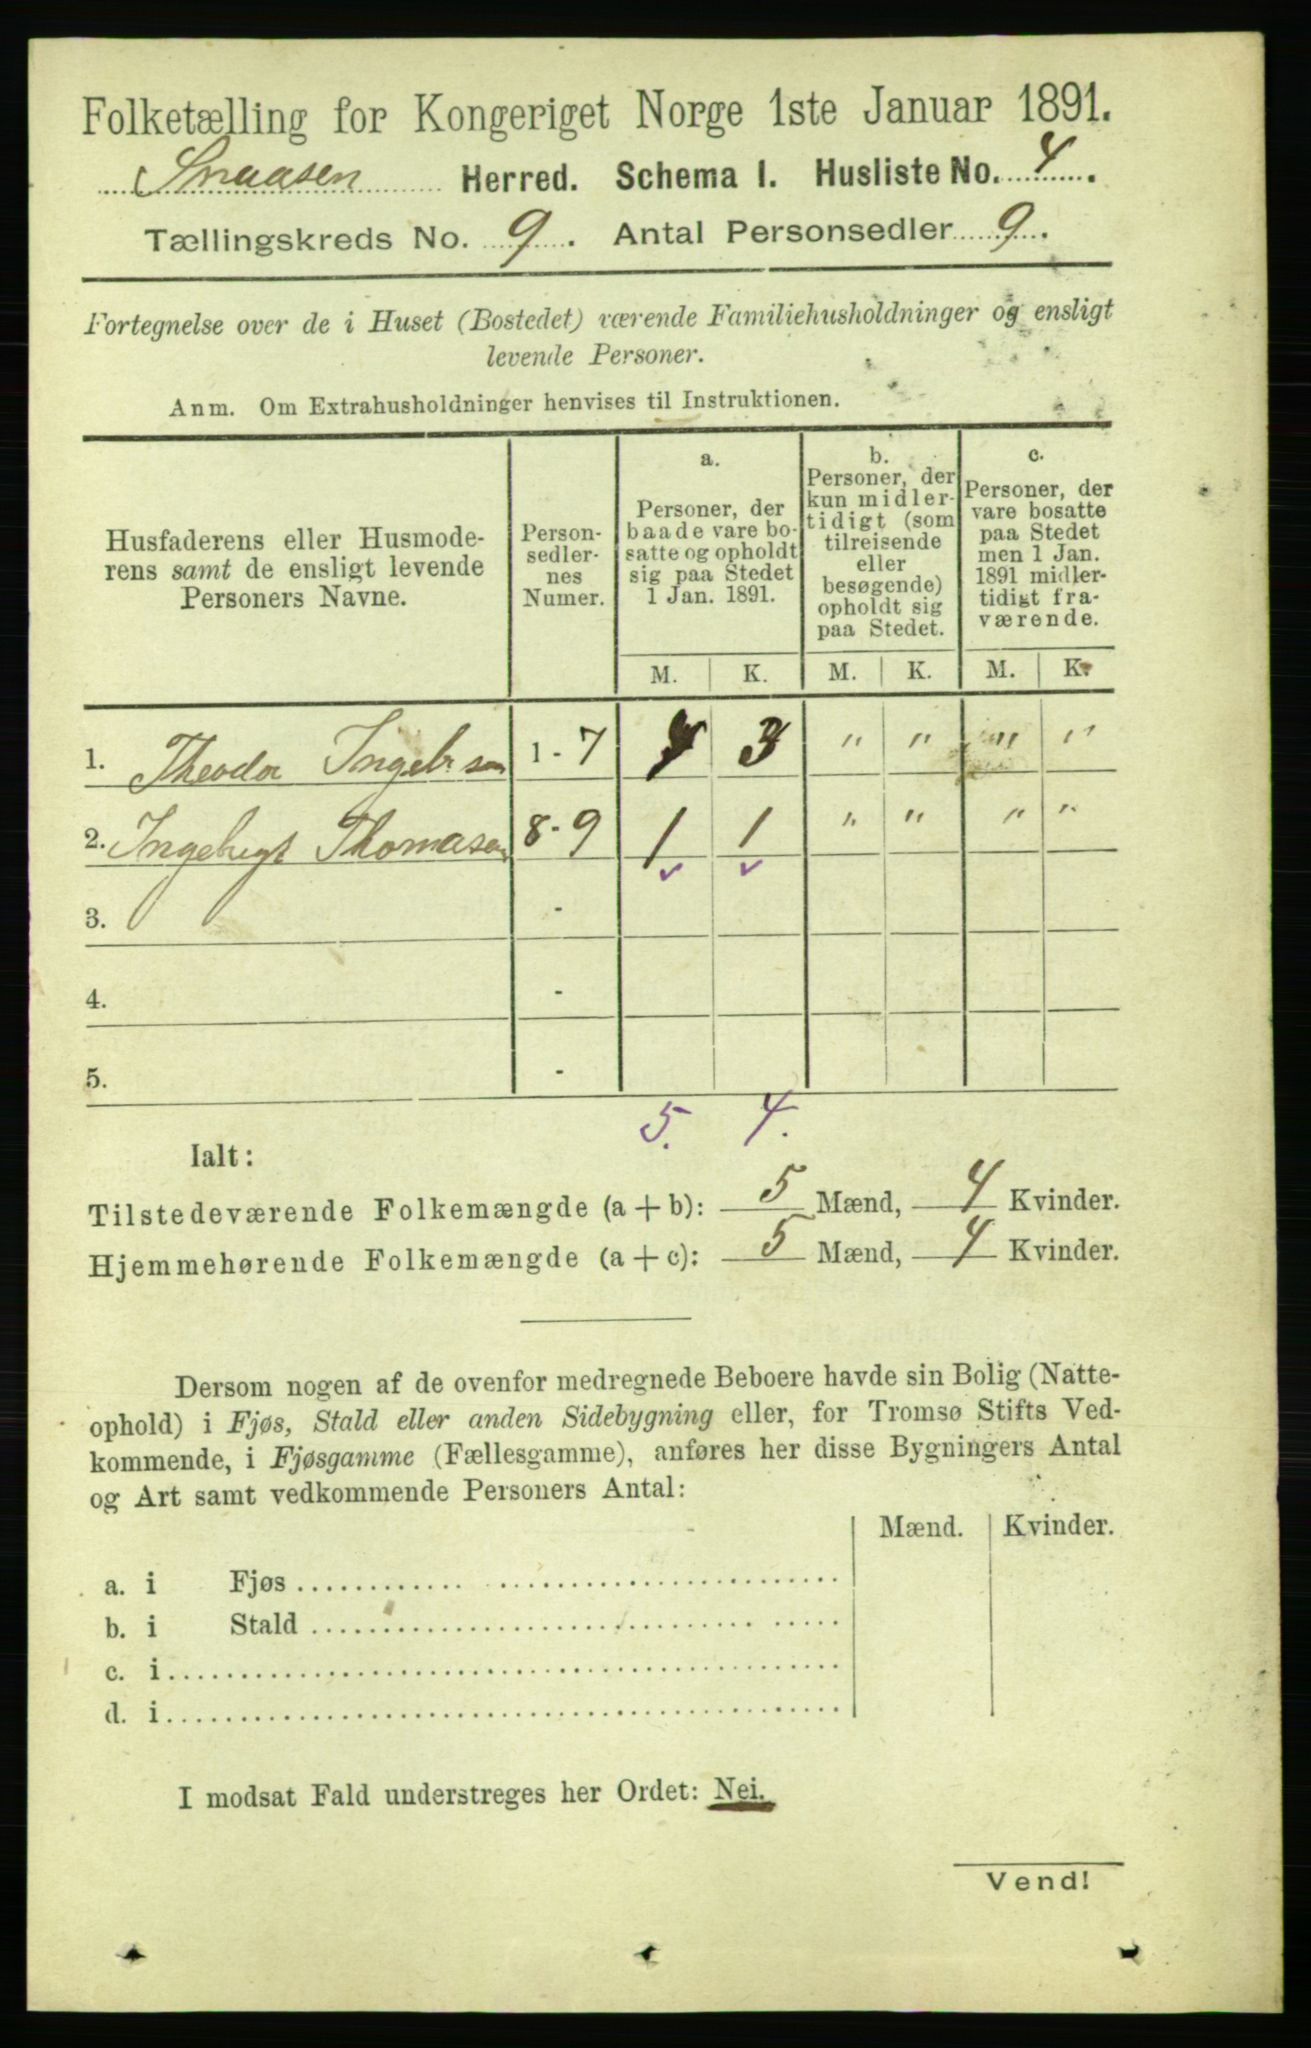 Folketælling for Kongeriget Norge 1ste Januar 1891.
Snaasen Herred. Schema I. Husliste No. 4.
Tællingskreds No. 9. Antal Personsedler 9.
Fortegnelse over de i Huset (Bostedet) værende Familiehusholdninger og ensligt
levende Personer.
Anm. Om Extrahusholdninger henvises til Instruktionen.
Husfaderens eller Husmode-
rens samt de ensligt levende
Personers Navne.
Person-
sedler-
nes
Numer.
a.
Personer, der
baade vare bo-
satte og opholdt
sig paa Stedet
1 Jan. 1891.
b.
Personer, der
kun midler-
tidigt (som
tilreisende
eller
besøgende)
opholdt sig
paa Stedet.
c.
Personer, der
vare bosatte
paa Stedet
men 1 Jan.
1891 midler-
tidigt fra-
værende.
M. K. M. K. M. K.
1. Theodor 1 - 7 4 3 " " " "
2. Ingebrigt Thomasen 8 - 9 1 1 " " " "
3. -
4. -
5. -
5. 4.
Ialt:
Tilstedeværende Folkemængde (a + b): 5 Mænd, 4 Kvinder.
Hjemmehørende Folkemængde (a + c): 5 Mænd, 4 Kvinder.
Dersom nogen af de ovenfor medregnede Beboere havde sin Bolig (Natte-
ophold) i Fjøs, Stald eller anden Sidebygning eller, for Tromsø Stifts Ved-
kommende, i Fjøsgamme (Fællesgamme), anføres her disse Bygningers Antal
og Art samt vedkommende Personers Antal:
Mænd. Kvinder.
a. i Fjøs
b. i Stald
c. i
d. i
I modsat Fald understreges her Ordet: Nei.
Vend!